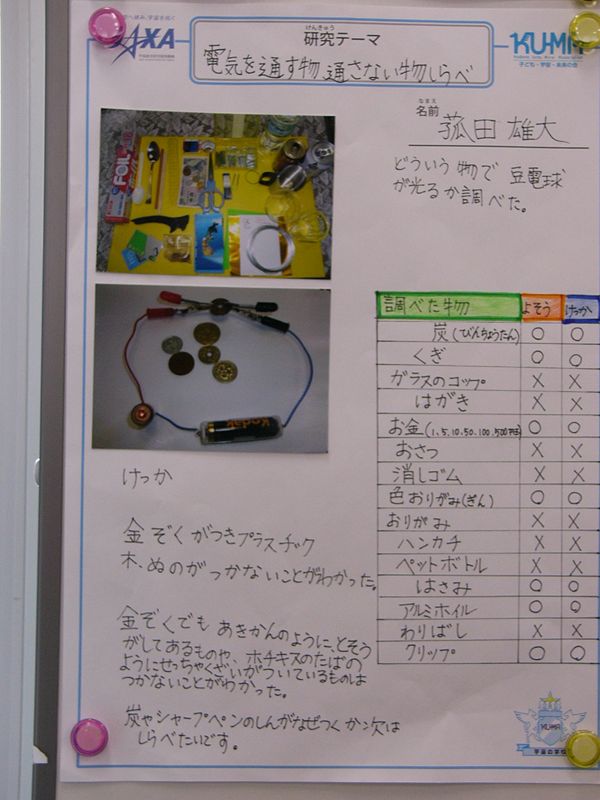 研究テーマ
けんきゅう
電気を通す物 通さない物しらべ
JAXA
KUMA
子ども・宇宙・未来の会
名前
なまえ
菰田 雄大
どういう物で 豆電球
が光るか調べた。
FOIL
Kodak
調べた物 よそう けっか
炭(びんちょうたん) ○ ○
くぎ ○ ○
ガラスのコップ X X
はがき X X
お金(1、5、10、50、100、500円玉) ○ ○
おさつ X X
消しゴム X X
色おりがみ(ぎん) ○ ○
おりがみ X X
ハンカチ X X
ペットボトル X X
はさみ ○ ○
アルミホイル ○ ○
わりばし X X
クリップ ○ ○
けっか
金ぞくがつきプラスチック
木、ぬのがつかないことがわかった。
金ぞくでも あきかんのように、とそう
がしてあるものや、ホチキスのたばの
ようにせっちゃくざいがついているものは
つかないことがわかった。
炭やシャープペンのしんがなぜつくか次は
しらべたいです。
KUMA
宇宙の学校